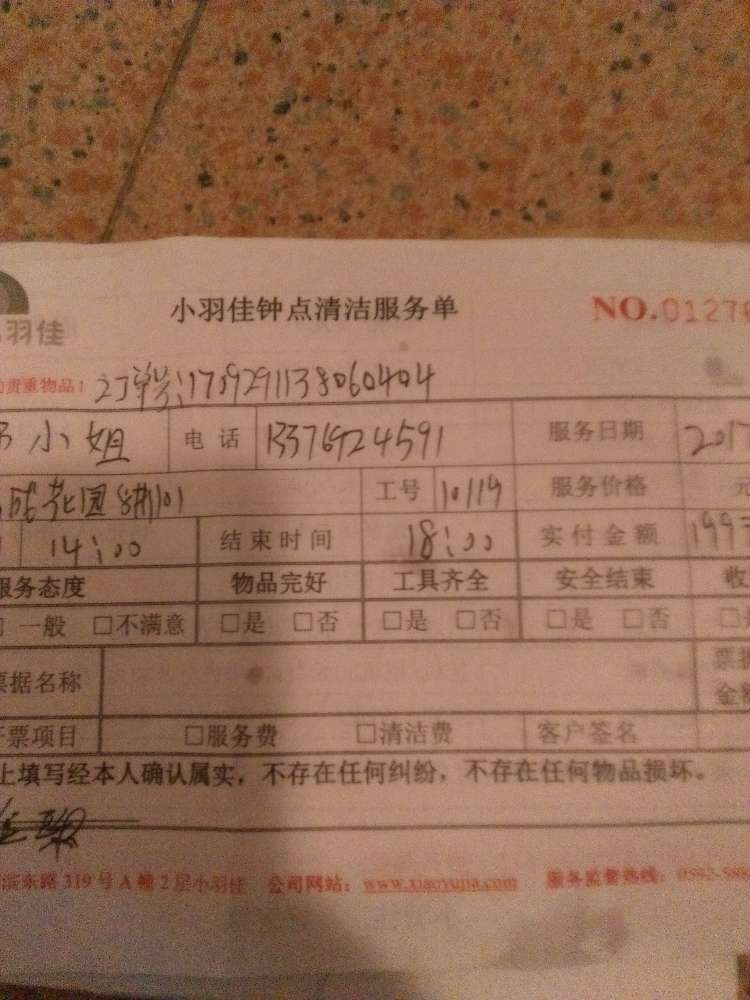 小羽佳钟点清洁服务单 NO.01270
羽佳
贵重物品! 订单号:1739291138060404
小姐 电话 13376924591 服务日期 2017
花园 101 工号 10119 服务价格 元
14:00 结束时间 18:00 实付金额 199
服务态度 物品完好 工具齐全 安全结束 收
□一般 □不满意 □是 □否 □是 □否 □是 □否
票据名称 票据
金额
开票项目 □服务费 □清洁费 客户签名
上填写经本人确认属实，不存在任何纠纷，不存在任何物品损坏。
滨东路319号A幢2层小羽佳 公司网站：www.xiaoyujia.com 服务监督热线：0592-588